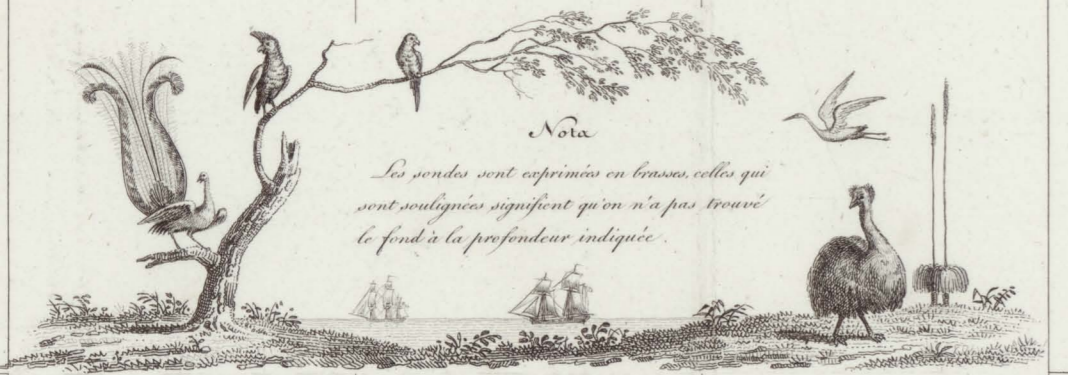 Nota
Les sondes sont exprimées en brasses, celles qui
sont soulignées signifient qu'on n'a pas trouvé
le fond à la profondeur indiquée.